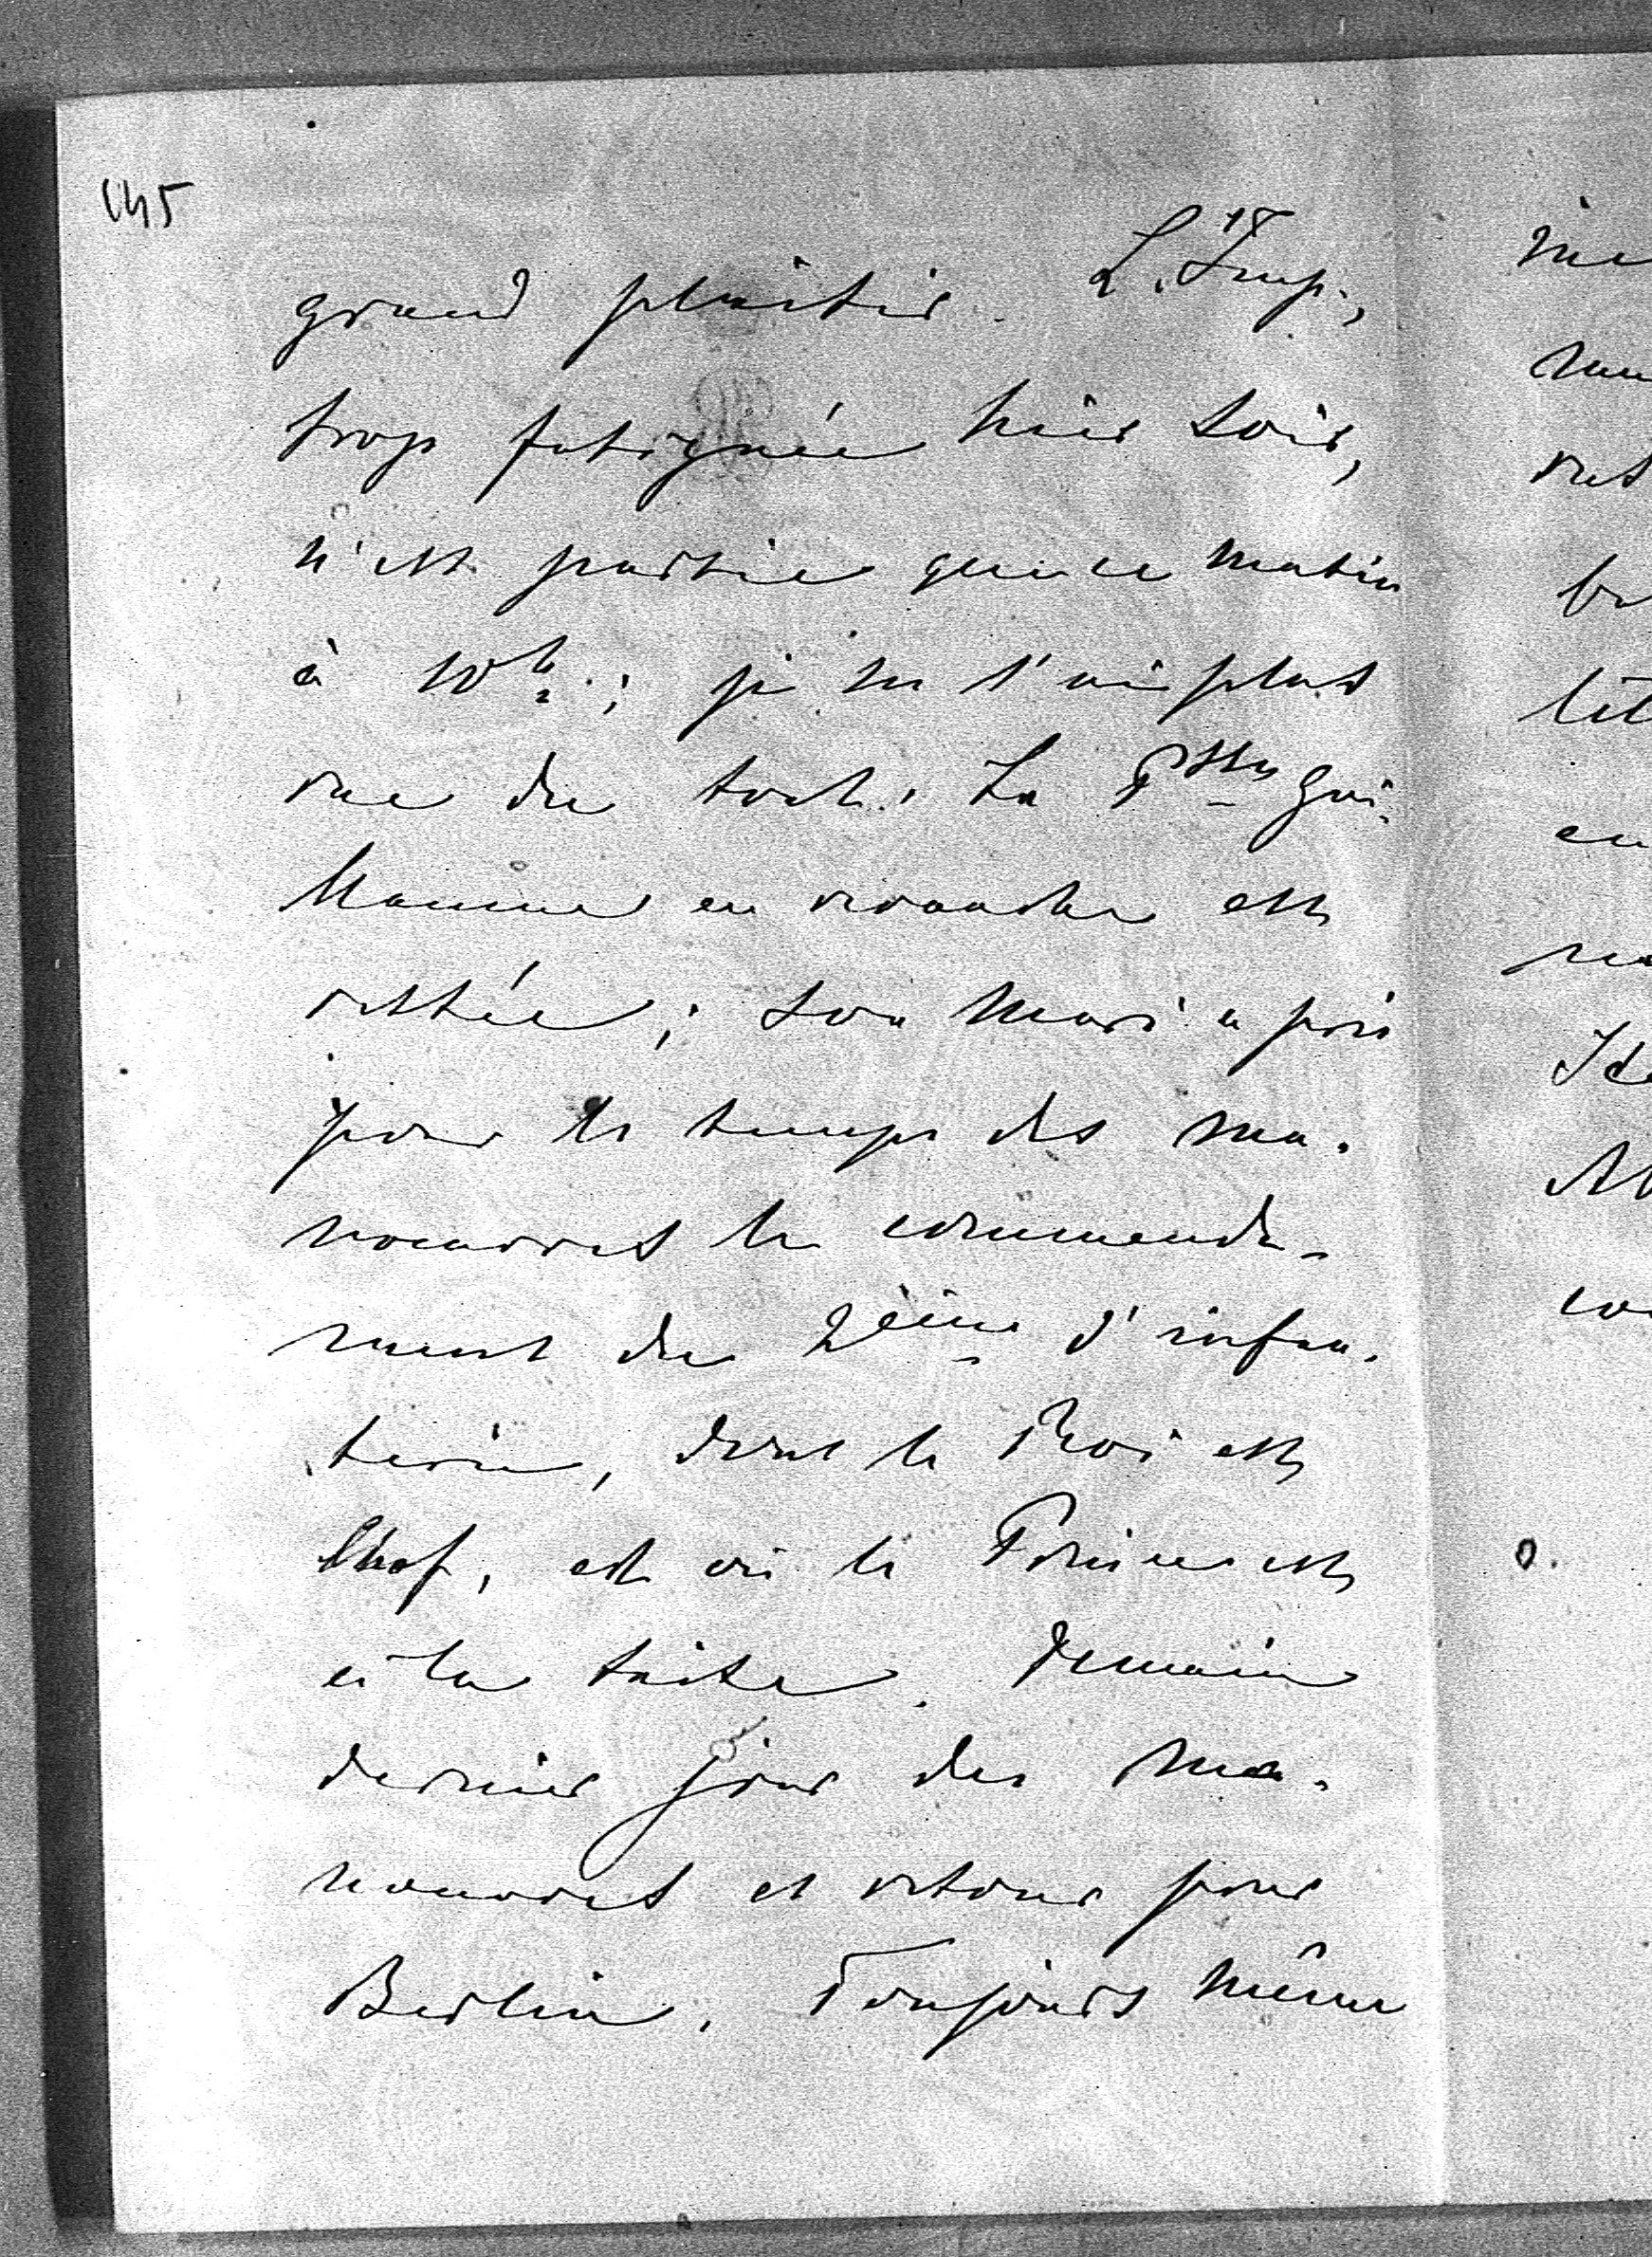 145
grand plaisir. L'Imp.,
trop fatiguée hier soir,
n'est partie que ce matin
à 10h.; je ne l'ai plus
vue du tout. La Psse Gui-
llaume en revanche est
restée; son mari a pris
pour le temps des ma-
noeuvres le commande-
ment du 2ème d'infan-
terie, dont le Roi est
Chef, et où le Prince est
à la suite. Demain
dernier jour des ma-
noeuvres et retour pour
Berlin. Toujours même